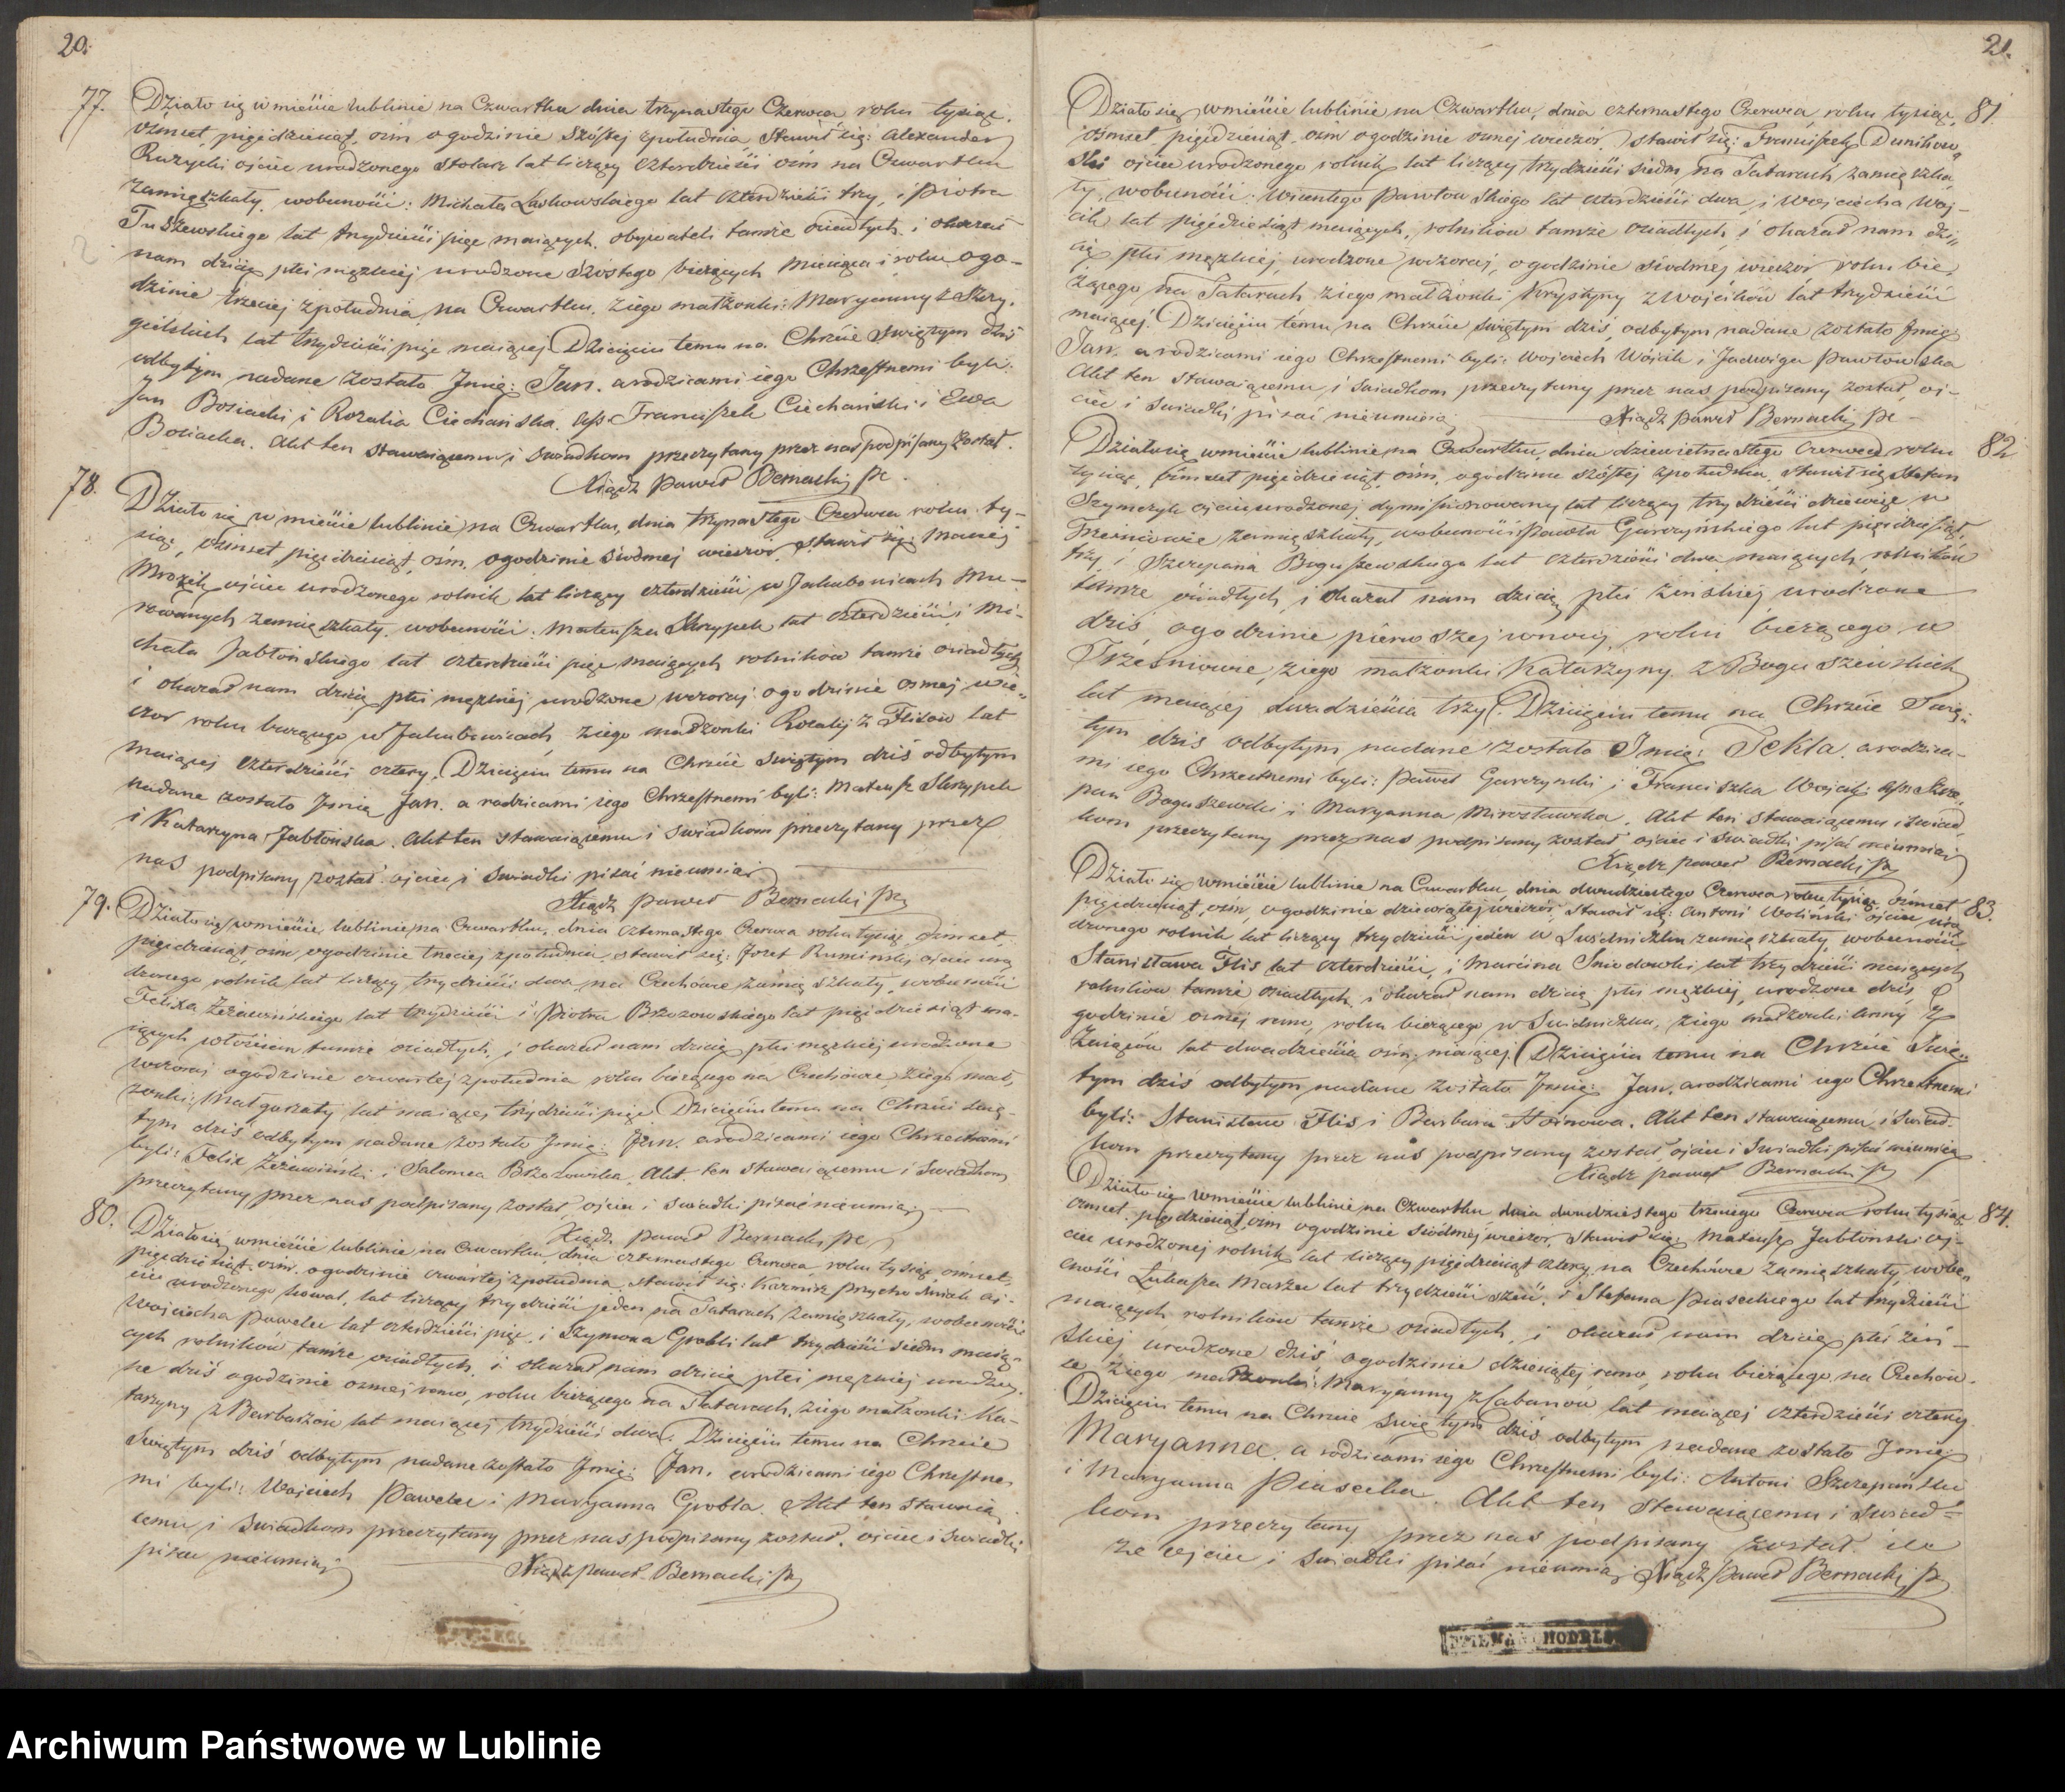 20.
77. Działo się w mieście Lublinie na Czwartku dnia trzynastego Czerwca roku tysiąc,
ośmset, pięćdziesiąt, ośm ogodzinie szóstej zpołudnia, Stawił się: Alexander
Ruzycki ojciec urodzonego Stolarz lat liczący czterdzieści ośm na Czwartku
zamięszkały, wobecności: Michała Laskowskiego lat czterdzieści trzy, i Piotra
Tuszewskiego lat trzydzieści pięć maiących, obywateli tamże osiadłych, i okazał
nam dziecię płci męzkiej urodzone szóstego bieżących Miesiąca i roku ogo-
dzinie trzeciej zpołudnia na Czwartku, ziego małżonki: Maryanny z
lat trzydzieści pięć maiącej Dziecięciu temu na Chrzcie Swiętym dziś
odbytym nadane zostało Jmię: Jan. arodzicami iego Chrzestnemi byli:
Jan Bosiacki i Rozalia Ciechańska. Ass: Franciszek Ciechański i Ewa
Bosiacka. Akt ten stawaiącemu i swiadkom przeczytany przez nas podpisany został.
Xiądz Paweł Bernacki
78. Działo się w mieście Lublinie na Czwartku, dnia trzynastego Czerwca roku ty-
siąc, ośmset pięćdziesiąt, ośm, ogodzinie siódmej wieczor, stawił się: Maciej
Mrozik ojciec urodzonego rolnik lat liczący czterdzieści w Jakubowicach Mu-
rowanych zamięszkały, wobecności: Mateusza Skrzypek lat czterdzieści, i Mi-
chała Jabłońskiego lat czterdzieści pięć maiących rolników tamże osiadłych
i okazał nam dziecię płci męzkiej urodzone wczoraj ogodzinie osmej wie-
czor roku bieżącego w Jakubowicach ziego małżonki Rozalij z Flisów lat
maiącej czterdzieści cztery. Dziecięciu temu na Chrzcie Swiętym dziś odbytym
nadane zostało Jmię Jan. a rodzicami iego Chrzestnemi byli: Mateusz Skrzypek
i Katarzyna Jabłońska. Akt ten stawaiącemu i swiadkom przeczytany przez
nas podpisany został. ojciec i swiadki pisać nieumieią
Xiądz Paweł Bernacki
79. Działo się w mieście, Lublinie na Czwartku, dnia czternastego Czerwca roku tysiąc ośmset,
pięćdziesiąt, ośm ogodzinie trzeciej zpołudnia, stawił się: Jozef Rumiński ojciec uro-
dzonego rolnik lat liczący trzydzieści dwa, na Czechówce zamięszkały, wobecności
Felixa Zezawińskiego lat trzydzieści i Piotra Brzozowskiego lat pięćdziesiąt ma-
iących włościan tamże osiadłych, i okazał nam dziecię płci męzkiej urodzone
wczoraj ogodzinie czwartej zpołudnia roku bieżącego na Czechówce, ziego mał-
żonki: Małgorzaty lat maiącej trzydzieści pięć Dziecięciu temu na Chrzcie Swię-
tym dziś odbytym nadane zostało Jmię: Jan. arodzicami iego Chrzestnemi
byli: Felix Zezawiński i Salomea Brzozowska, Akt. ten stawaiącemu i Swiadkom
przeczytany przez nas podpisany został, ojciec i swiadki pisać nieumieią
Xiądz Paweł Bernacki
80. Działo się w mieście Lublinie na Czwartku, dnia czternastego Czerwca, roku tysiąc, ośmset,
pięćdziesiąt, ośm, ogodzinie czwartej zpołudnia, stawił się: Kazmirz oj-
ciec urodzonego kowal, lat liczący trzydzieści jeden na Tatarach zamięszkały, wobecności
Wojciecha Pawelec lat czterdzieści pięć, i Szymona Grobli lat trzydzieści siedm maią-
cych rolników tamże osiadłych, i okazał nam dziecię płci męzkiej urodzo-
ne dziś ogodzinie osmej rano, roku bieżącego na Tatarach, ziego małżonki: Ka-
tarzyny z Barbarzów lat maiącej trzydzieści dwa. Dziecięciu temu na Chrzcie
Swiętym dziś odbytym nadane zostało Jmię: Jan. arodzicami iego Chrzestne-
mi byli: Wojciech Pawelec i Maryanna Grobla. Akt ten stawaią-
cemu i swiadkom przeczytany przez nas podpisany został, ojciec i swiadki
pisać nieumieią
Xiądz Paweł Bernacki
21.
81. Działo się w mieście Lublinie na Czwartku, dnia czternastego Czerwca, roku tysiąc,
ośmset pięćdziesiąt, ośm ogodzinie osmej wieczor, stawił się: Franciszek Dunikow-
ski ojciec urodzonego rolnik lat liczący trzydzieści siedm na Tatarach zamięszka-
ły, wobecności: Wicentego Pawłowskiego lat czterdzieści dwa, i Wojciecha Woj-
cik lat pięćdziesiąt maiących, rolników tamże osiadłych, i okazał nam dzie-
cię płci męzkiej, urodzone wczoraj, ogodzinie siódmej wieczor roku bie-
żącego na Tatarach ziego małżonki Krystyny z Wojcików lat trzydzieści
maiącej. Dziecięciu temu na Chrzcie Swiętym dziś, odbytym nadane zostało Jmię
Jan. a rodzicami iego Chrzestnemi byli: Wojciech Wójcik i Jadwiga Pawłowska
Akt ten stawaiącemu i swiadkom przeczytany przez nas podpisany został, oj-
ciec i swiadki pisać nieumieią
Xiądz Paweł Bernacki
82. Działo się w mieście Lublinie na Czwartku, dnia dziewietnastego Czerwca roku
tysiąc, ośmset pięćdziesiąt, ośm, ogodzinie szóstej zpołudnia, stawił się Stefan
Szymczyk ojciec urodzonej dymisionowany lat liczący trzydzieści dziewięć w
Trzesniowie zamięszkały, wobecności Pawła Garczyńskiego lat pięćdziesiąt
trzy, i Szczepana Boguszewskiego lat czterdzieści dwa maiących, rolników
tamże osiadłych, i okazał nam dziecię płci żeńskiej urodzone
dziś, ogodzinie pierwszej wnocy, roku bieżącego w
Trześniowie, ziego małżonki: Katarzyny z Boguszewskich
lat maiącej dwadzieścia trzy. Dziecięciu temu na Chrzcie Swię-
tym dziś odbytym nadane zostało Jmię: Tekla. arodzica-
mi iego Chrzestnemi byli: Paweł Garczynski i Franciszka Wojcik: Ass: Szcze-
pan Boguszewski i Maryanna Mirosławska. Akt ten stawaiącemu i swiad-
kom przeczytany przez nas podpisany został, ojciec i swiadki pisać nieumieią
Xiądz Paweł Bernacki
83. Działo się w mieście Lublinie na Czwartku, dnia dwudziestego Czerwca roku tysiąc, ośmset
pięćdziesiąt, ośm, ogodzinie dziewiątej wieczor, stawił się: Antoni Woliński ojciec uro-
dzonego rolnik lat liczący trzydzieści jeden w Swidniczku zamięszkały, wobecności
Stanisława Flis lat czterdzieści, i Marcina Sniodowski lat trzydzieści maiących
rolników tamże osiadłych, i okazał nam dziecię płci męzkiej, urodzone dziś, o
godzinie osmej rano, roku bieżącego, w Swidniczku, ziego małżonki Anny z
lat dwadzieścia ośm, maiącej. Dziecięciu temu na Chrzcie Swię-
tym dziś odbytym nadane zostało Jmię: Jan. arodzicami iego Chrzestnemi
byli: Stanisław Flis i Barbara Hoinowa. Akt ten stawaiącemu i swiad-
kom przeczytany przez nas podpisany został, ojciec i swiadki pisać nieumieią
Xiądz Paweł Bernacki
84. Działo się w mieście Lublinie na Czwartku dnia dwudziestego trzeciego Czerwca roku tysiąc
ośmset, pięćdziesiąt, ośm ogodzinie siódmej wieczor, stawił się: Mateusz Jabłonski oj-
ciec urodzonej rolnik lat liczący pięćdziesiąt cztery na Czechówce zamięszkały, wobe-
cności Łukasza Marzec lat trzydzieści sześć, i Stefana Piaseckiego lat trzydzieści
maiących rolników tamże osiadłych, i okazał nam dziecię płci żeń-
skiej, urodzone dziś, ogodzinie dziesiątej rano, roku bieżącego, na Czechów-
ce ziego małżonki: Maryanny z Łabanów lat maiącej czterdzieści cztery.
Dziecięciu temu na Chrzcie Swiętym dziś odbytym nadane zostało Jmię
Maryanna. a rodzicami iego Chrzestnemi byli: Antoni Szczepański
i Maryanna Piasecka. Akt ten stawaiącemu i swiad-
kom przeczytany przez nas podpisany został. ile
że ojciec i swiadki pisać nieumieią
Xiądz Paweł Bernacki
Archiwum Państwowe w Lublinie